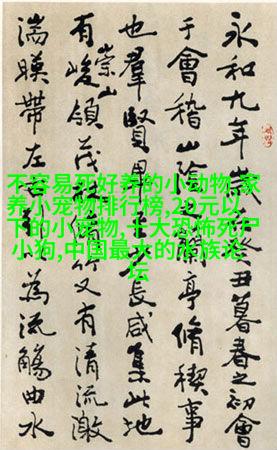 永和九年歲癸丑暮春之初會
于會稽山陰之蘭亭脩稧事
也羣賢畢長咸集此地
有崇山峻領茂竹又有清流激
湍暎帶左為流觴曲水
不容易死好养的小动物,家
养小宠物排行榜,20元以
下的小宠物,十大恐怖死尸
小狗,中国最大的水族论
坛